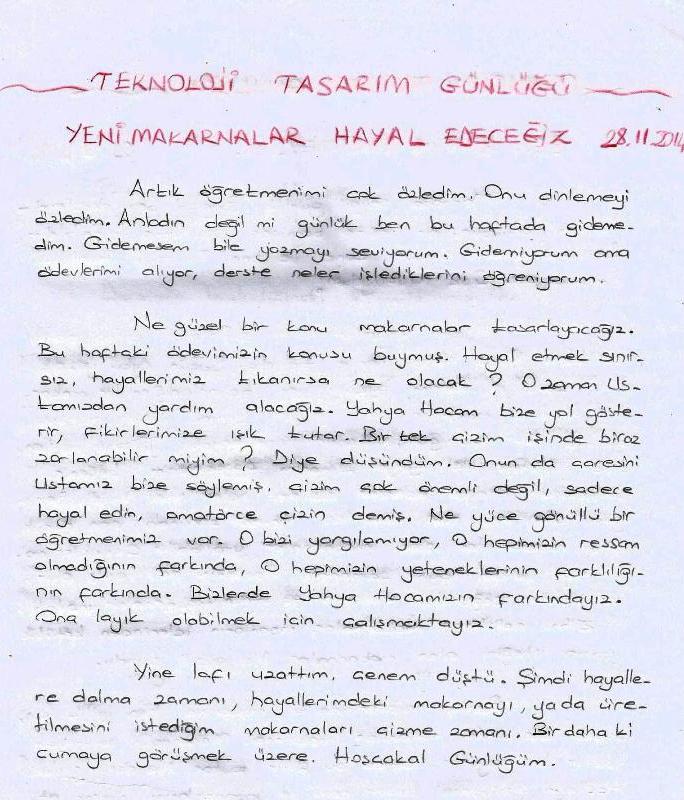 TEKNOLOJİ TASARIM GÜNLÜĞÜ
YENİ MAKARNALAR HAYAL EDECEĞİZ 28.11.2014
Artık öğretmenimi çok özledim. Onu dinlemeyi
özledim. Anladın değil mi günlük ben bu haftada gideme-
dim. Gidemesem bile yazmayı seviyorum. Gidemiyorum ama
ödevlerimi alıyor, derste neler işlediklerini öğreniyorum.
Ne güzel bir konu makarnalar tasarlayıcağız.
Bu haftaki ödevimizin konusu buymuş. Hayal etmek sınır-
sız, hayallerimiz tıkanırsa ne olacak ? O zaman Us-
tamızdan yardım alacağız. Yahya Hocam bize yol göste-
rir, fikirlerimize ışık tutar. Bir tek çizim işinde biraz
zorlanabilir miyim ? Diye düşündüm. Onun da çaresini
Ustamız bize söylemiş, çizim çok önemli değil, sadece
hayal edin, amatörce çizin demiş. Ne yüce gönüllü bir
öğretmenimiz var. O bizi yargılamıyor, O hepimizin ressam
olmadığının farkında, O hepimizin yeteneklerinin farklılığı-
nın farkında. Bizlerde Yahya Hocamızın farkındayız.
Ona layık olabilmek için çalışmaktayız.
Yine lafı uzattım, çenem düştü. Şimdi hayalle-
re dalma zamanı, hayallerimdeki makarnayı, yada üre-
tilmesini istediğim makarnaları çizme zamanı. Bir daha ki
cumaya görüşmek üzere. Hoşçakal Günlüğüm.